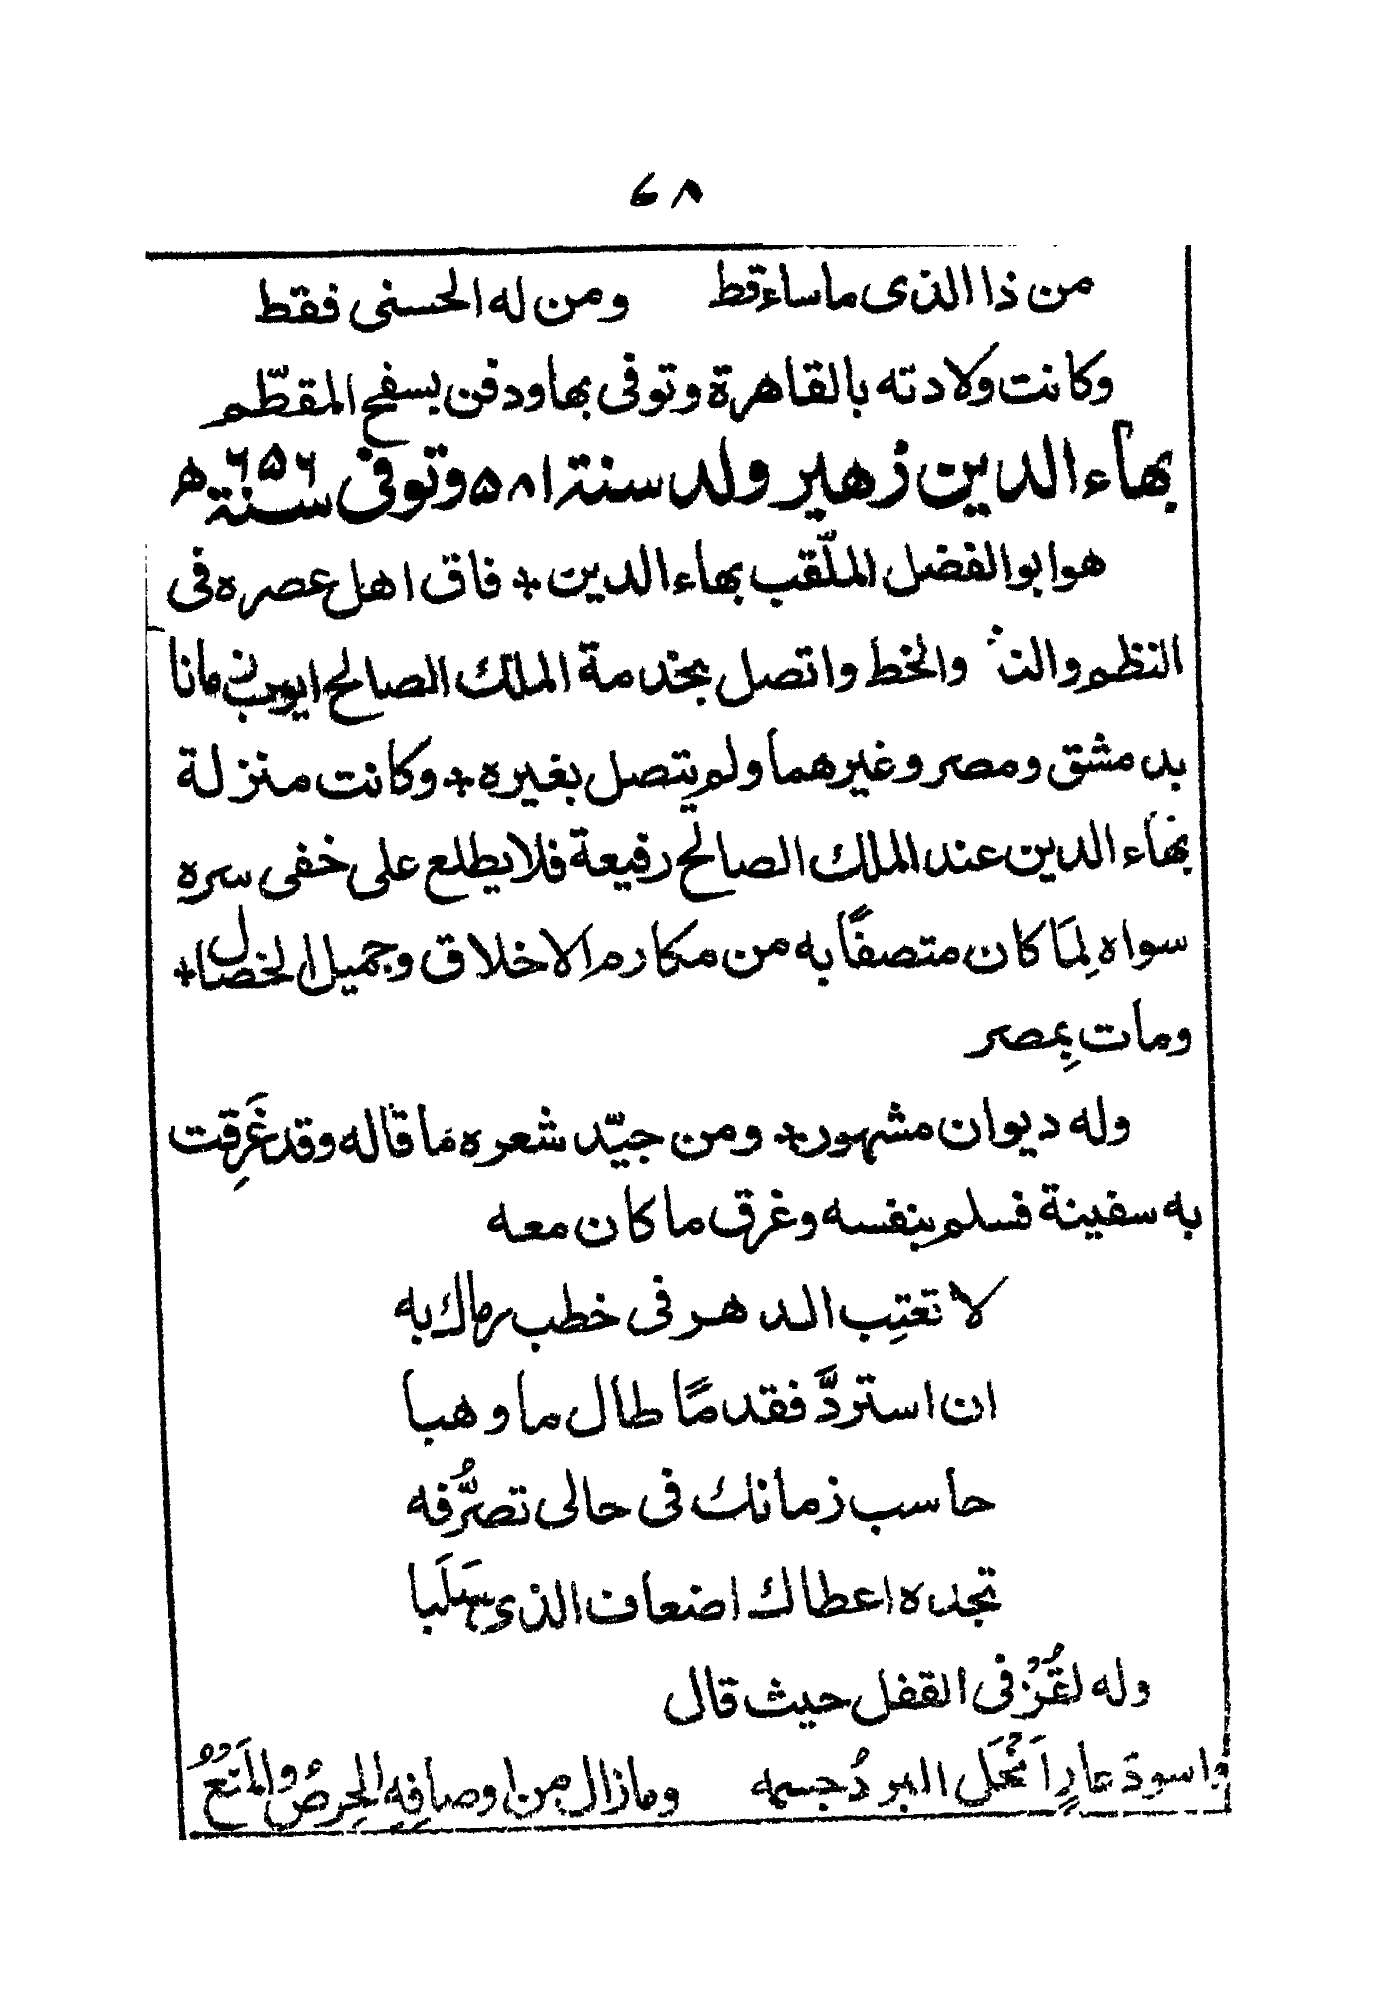 ٦٨
من ذا الذى ماساء قط ومن له الحسنى فقط
وكانت ولادته بالقاهرة وتوفى بها ودفن بسفح المقطّم
بهاء الدين زهير ولد سنة ٥٨١ وتوفى سنة ٦٥٦ ه
هو ابو الفضل الملقّب بهاء الدين + فاق اهل عصره فى
النظم والنثر والخط واتصل بخدمة الملك الصالح ايوب زمانا
بدمشق ومصر وغيرهما ولم يتصل بغيره + وكانت منزلة
بهاء الدين عند الملك الصالح رفيعة فلا يطلع على خفى سره
سواه لِمَا كان متصفًا به من مكارم الاخلاق وجميل الخصال +
ومات بِمصر
وله ديوان مشهور + ومن جيّد شعره مَا قاله وقد غَرِقت
به سفينة فسلم بنفسه وغرق ما كان معه
لا تعتِب الدهر فى خطب رماك به
ان استردَّ فقدمًا طال ما وهبا
حاسب زمانك فى حالى تصرُّفه
تجده اعطاك اضعاف الذى سَلَبا
وله لُغْزٌ فى القفل حيث قال
واسودَ عارٍ اَنْحَل البردُ جسمه ومازال من اوصافِهِ الحِرصُ والمَنْعُ